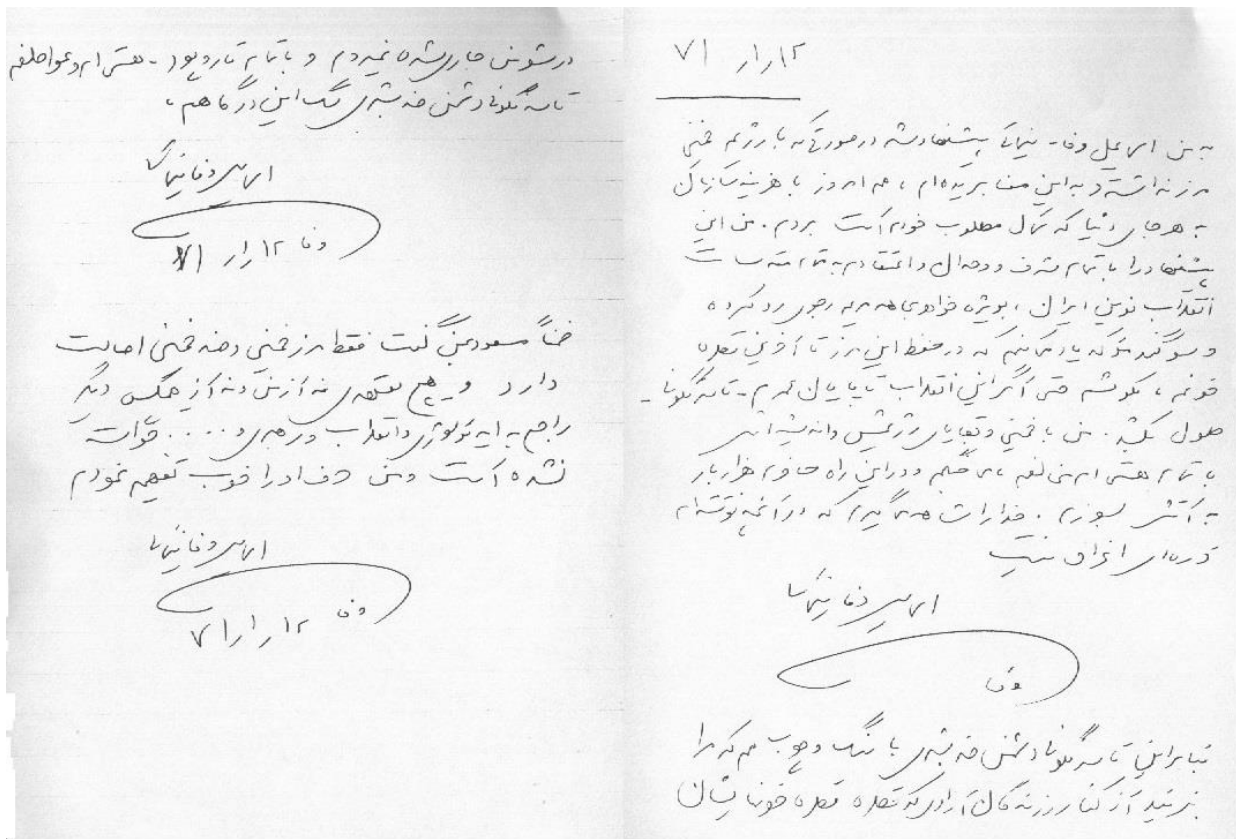 ۱۲ر۱ر۷۱
به من اسماعیل وفا- یغمائی پیشنهاد شد در صورتی که با رژیم خمینی
مرز نداشته و به این صف بریده‌ام ، هم امروز با هزینه سازمان
به هر جای دنیا که کمال مطلوب خودم است بروم . من این
پیشنهاد را با تمام شرف و وجدان و اعتقادم به تمام مقدسات
انقلاب نوین ایران ، بویژه خواهر مریم رجوی رد کرده
و سوگند یاد می‌کنم که در حفظ این مرز تا آخرین قطره
خونم ، بکوشم حتی اگر این انقلاب تا پایان عمرم - تا سرنگونی -
طول بکشد . من با خمینی و بقایای رژیمش و اندیشه‌اش
با تمام هستی‌ام می‌جنگم و در این راه حاضرم هزار بار
به آتش بسوزم . خدا را شاهد می‌گیرم که در آنچه نوشته‌ام
ذره‌ای اغراق نیست
اسماعیل وفا یغمائی
وفا
بنابراین تا سرنگونی دشمن ضد بشری با سنگ و چوب هم که مرا
بزنید از کنار رزمندگان آزادی که قطره قطره خونهایشان
در شورش جاری شده نمی‌روم و با تمام تار و پود - هستی‌ام و عواطفم
تا سرنگونی دشمن ضد بشری سگ این درگاهم ،
اسماعیل وفا یغمائی
وفا ۱۲ر۱ر۷۱
ضمناً مسعود بمن گفت فقط مرز خمینی و ضد خمینی اصالت
دارد و هیچ تعهدی نه از من و نه از هیچکس دیگر
راجع به ایدئولوژی و انقلاب و رهبری و .... خواسته
نشده است و من حرف او را خوب تفهیم نمودم
اسماعیل وفا یغمائی
وفا ۱۲ر۱ر۷۱